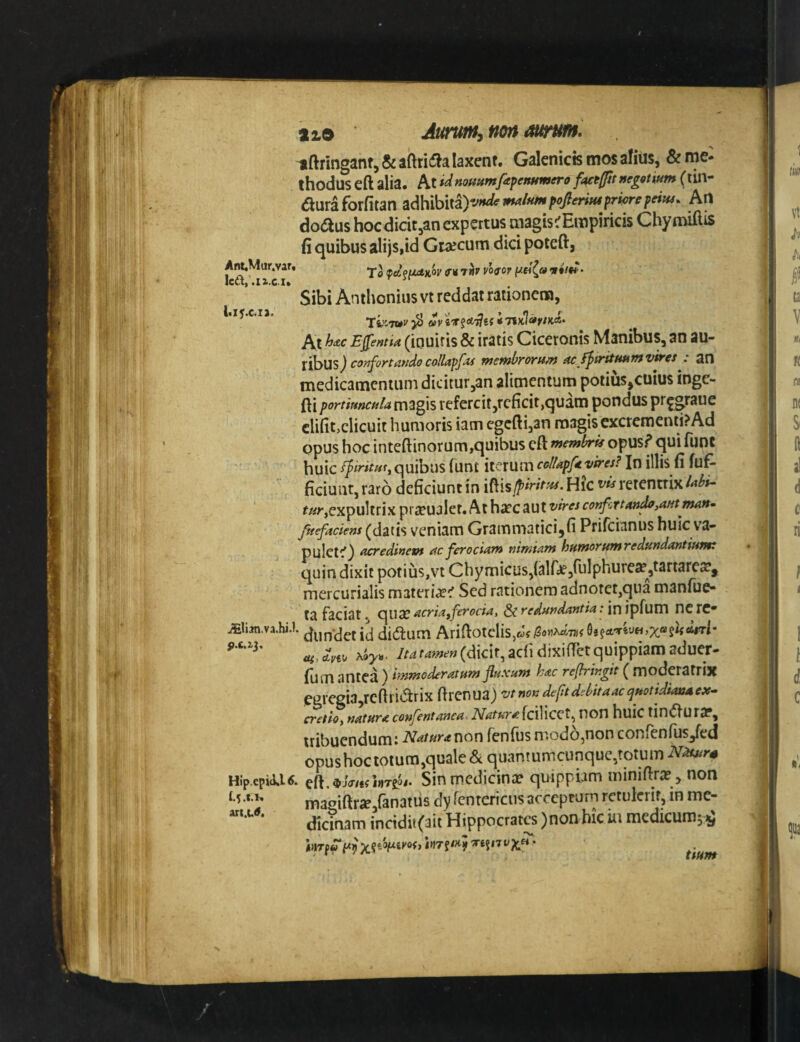 220 Aurum, non aurum.
astringant, & astricta laxent. Galenicis mos alius, & me-
thodus est alia. At id nouum sæpenumero facessit negotium (tin-
ctura forsitan adhibita) vnde malum posterius priore peius. An
doctus hoc dicit, an expertus magis? Empiricis Chymistis
si quibus alijs, id Græcum dici potest,
Ant. Mur. var.
lect, . 12. c. 1.
Τὸ φάρμακόν σου τὴν νόσον μείζω ποιεῖ.
Sibi Anthonius vt reddat rationem,
l. 15. c. 12.
At hæc Essentia (inuitis & iratis Ciceronis Manibus, an au-
ribus) confortando collapsas membrorum ac spirituum vires : an
medicamentum dicitur, an alimentum potius, cuius inge-
sti portiuncula magis refercit, reficit, quàm pondus prægraue
elisit, elicuit humoris iam egesti, an magis excrementi? Ad
opus hoc intestinorum, quibus est membris opus? qui sunt
huic spiritus, quibus sunt iterum collapsæ vires? In illis si suf-
ficiunt, rarò deficiunt in istis spiritus. Hîc vis retentrix labi-
tur, expultrix præualet. At hæc aut vires confortando, aut man-
suefaciens (datis veniam Grammatici, si Priscianus huic va-
pulet?) acredinem ac ferociam nimiam humorum redundantium:
quin dixit potius, vt Chymicus, salsæ, sulphureæ, tartareæ,
mercurialis materiæ? Sed rationem adnotet, quâ mansue-
ta faciat, quæ acria, ferocia, & redundantia: in ipsum ne re-
Ælian. va. hi. l.
9. c. 23.
dundet id dictum Aristotelis,
Ita tamen (dicit, acsi dixisset quippiam aduer-
sum anteà) immoderatum fluxum hæc restringit (moderatrix
egregia, restrictrix strenua) vt non desit debita ac quotidiana ex-
cretio, naturæ consentanea. Naturæ scilicet, non huic tincturæ,
tribuendum: Naturæ non sensus modò, non consensus, sed
opus hoc totum, quale & quantumcunque, totum Natura
Hip. epid. l. 6.
est. Φύσιες ἰητροί. Sin medicinæ quippiam ministræ, non
s. 5. t. 1.
magistræ, sanatus dysentericus acceptum retulerit, in me-
art. t. 6.
dicinam incidit (ait Hippocrates) non hîc in medicum;
tium